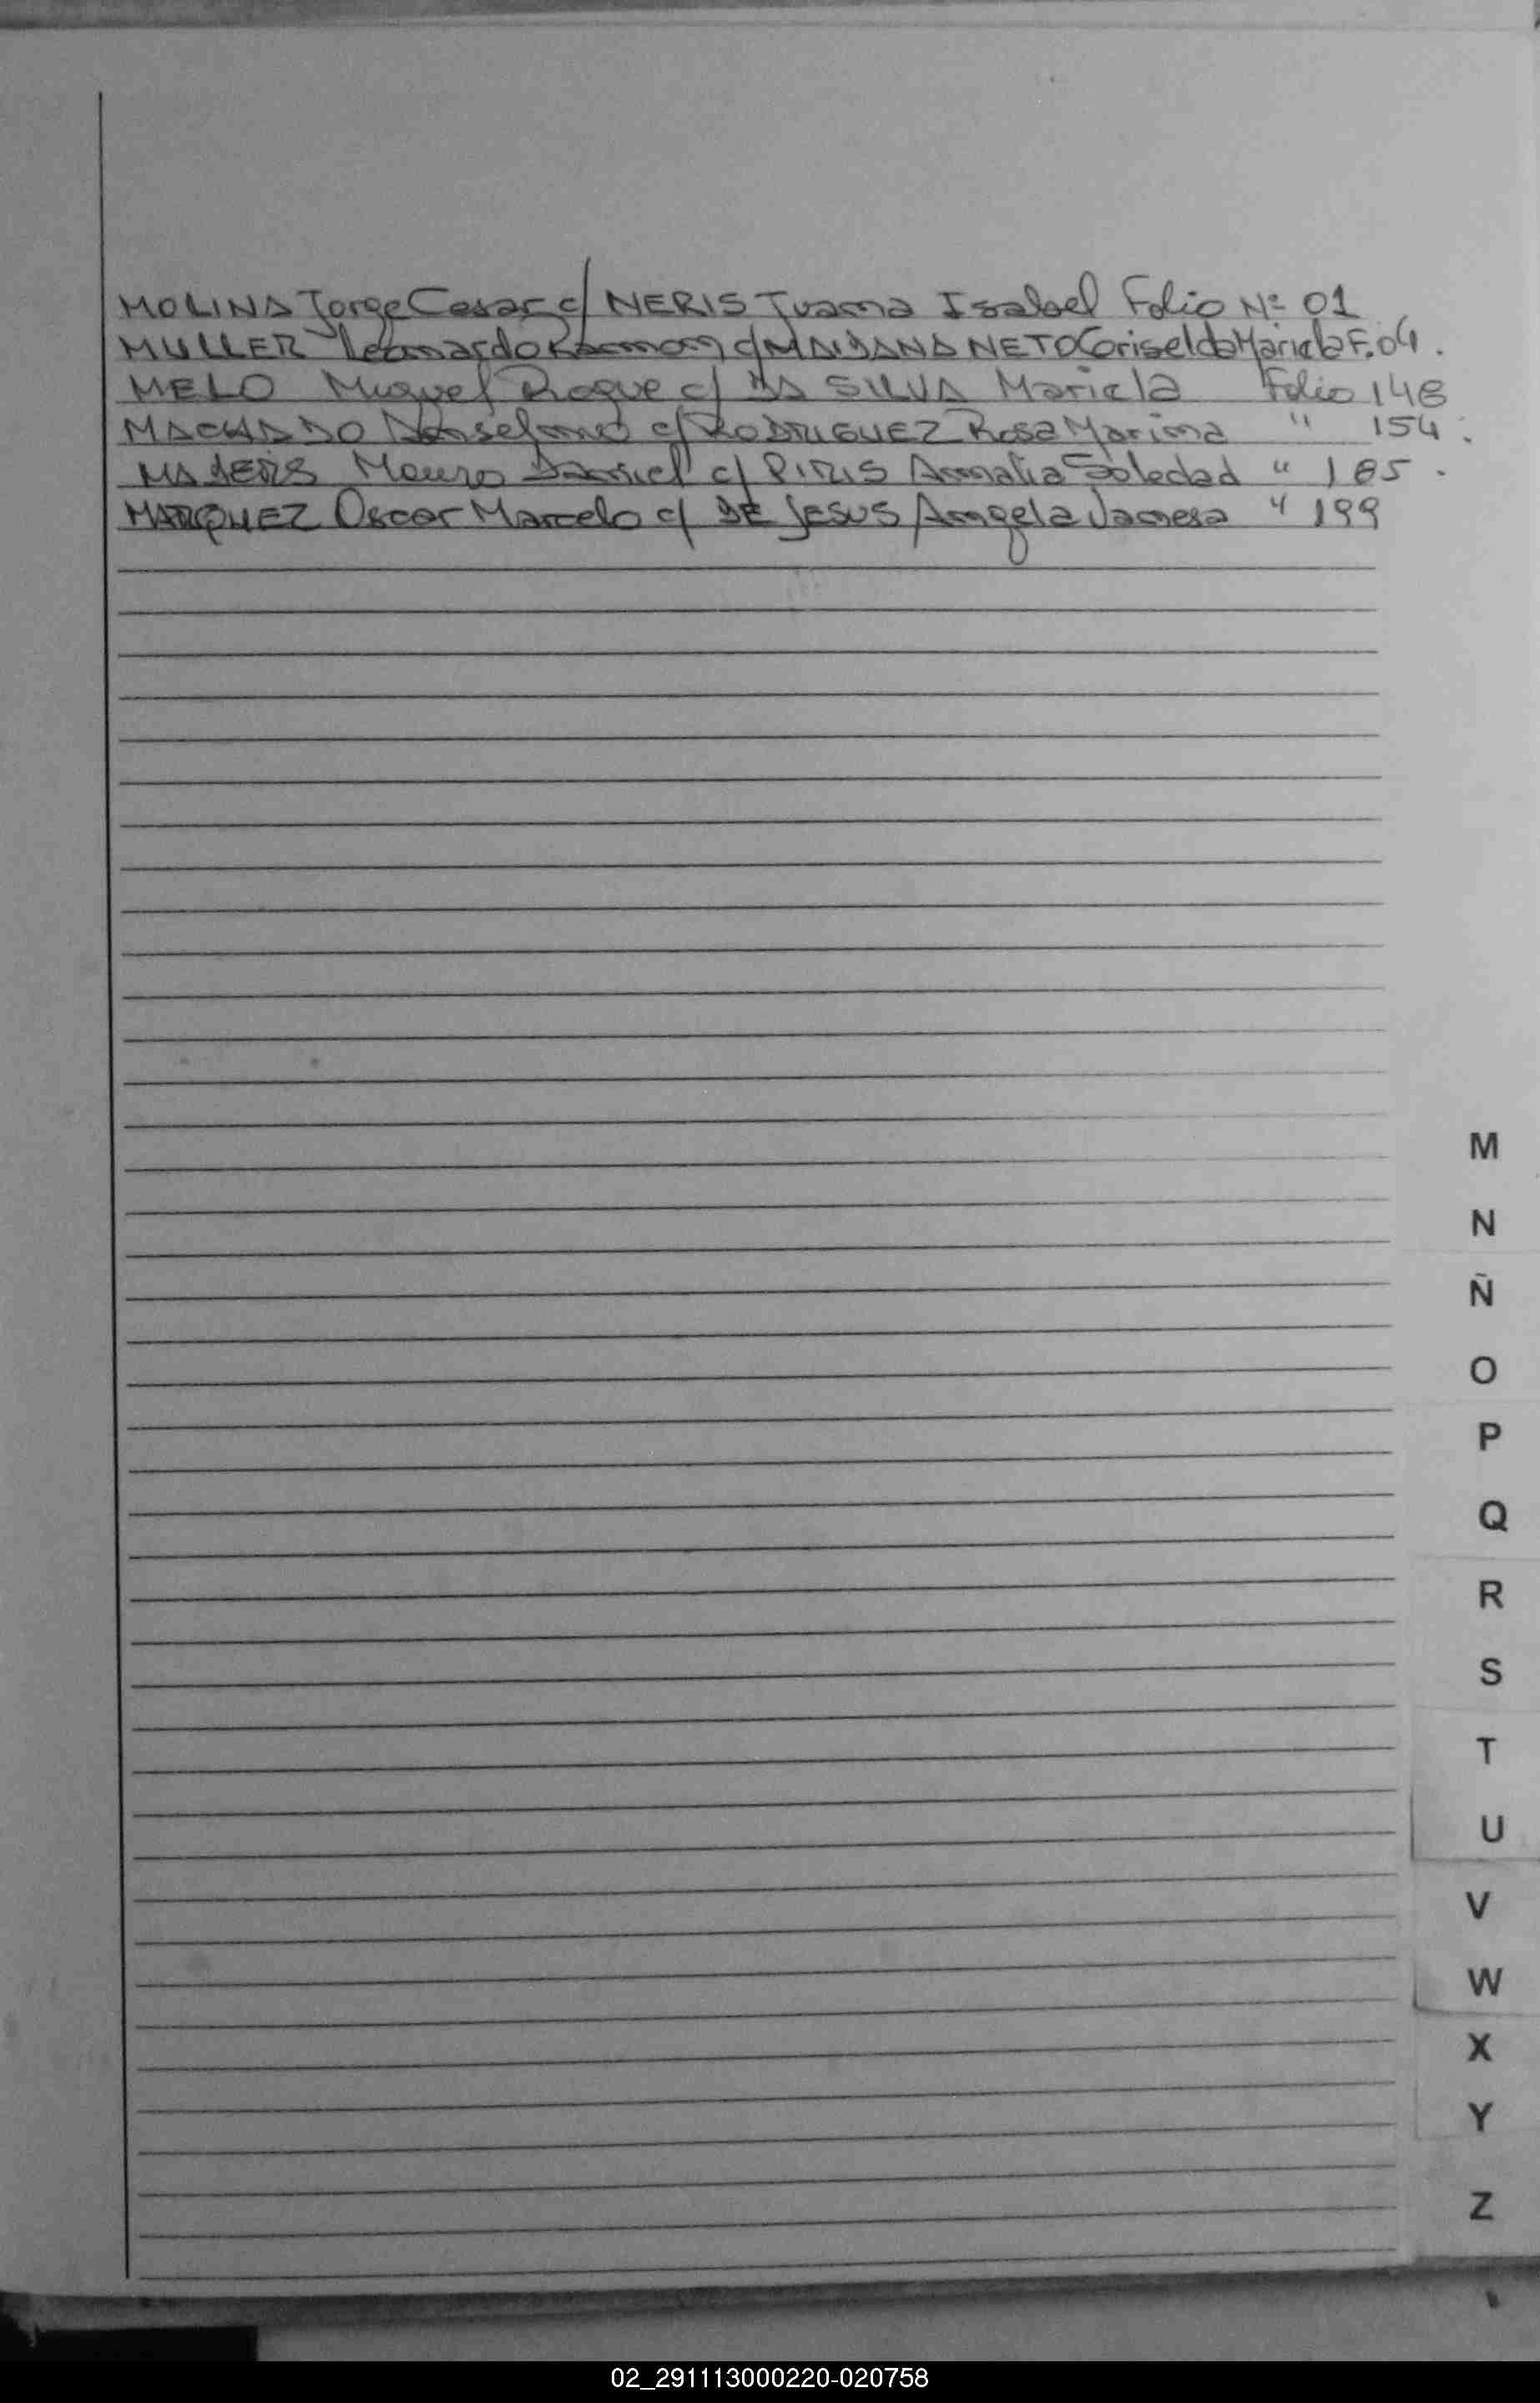 MOLINA Jorge Cesar c/ NERIS Juana Isabel Folio Nº 01
MULLER Leonardo Ramon c/ MAIDANA NETO Coriselda Mariela F. 04.
MELO Miguel Roque c/ DA SILVA Mariela Folio 148
MACHADO c/ RODRIGUEZ Rosa Marina " 154.
Mauro Daniel c/ PIRIS Amalia Soledad " 185.
MARQUEZ Oscar Marcelo c/ DE JESUS Angela Vanesa " 199
M
N
Ñ
O
P
Q
R
S
T
U
V
W
X
Y
Z
02_291113000220-020758